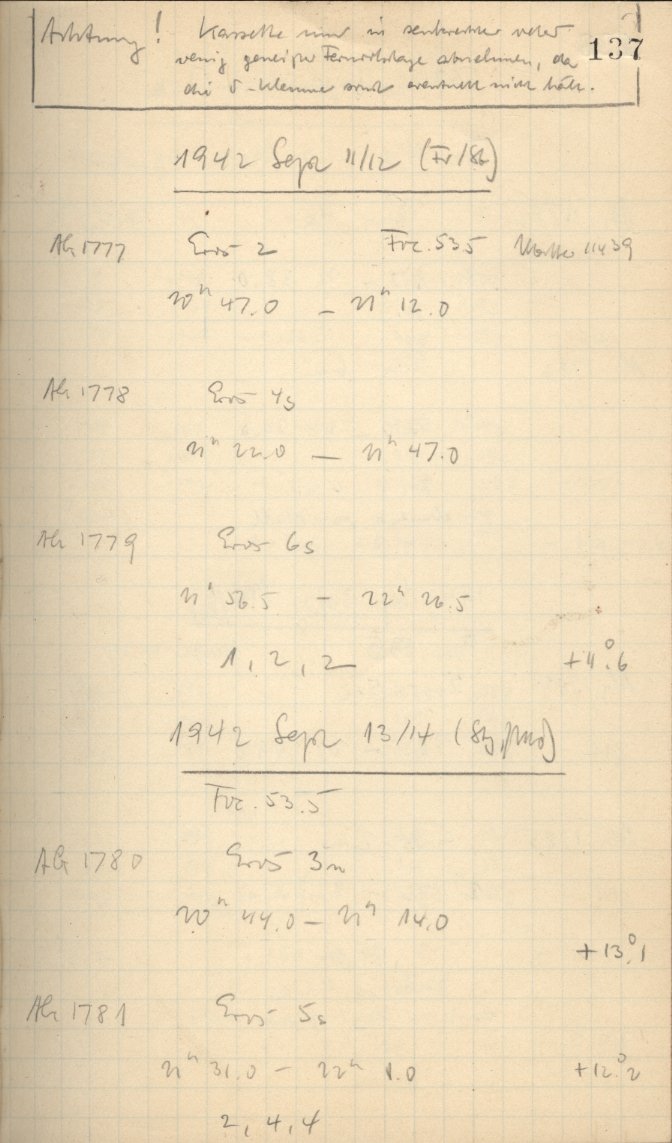 Achtung! Kassette nur in senkrechter oder
wenig geneigter Fernrohrlage abnehmen, da
die δ-Klemme sonst eventuell nicht hält.
137
1942 Sept 11/12 (Fr/Sb)
AG 1777 Eros 2 Foc. 53.5 11439
20ʰ 47.0 – 21ʰ 12.0
AG 1778 Eros 4s
21ʰ 22.0 – 21ʰ 47.0
AG 1779 Eros 6s
21ʰ 56.5 – 22ʰ 26.5
1, 2, 2 +11°.6
1942 Sept 13/14
Foc. 53.5
AG 1780 Eros 3n
20ʰ 44.0 – 21ʰ 14.0
+13°.1
AG 1781 Eros 5s
21ʰ 31.0 – 22ʰ 1.0 +12°.2
2, 4, 4